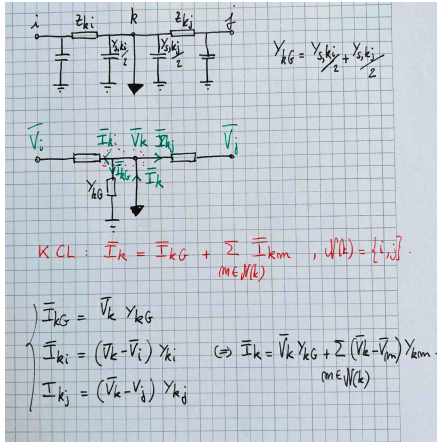 i z_{ki} k z_{kj} j
Y_{s,ki}/2 Y_{s,kj}/2 Y_{kG} = Y_{s,ki}/2 + Y_{s,kj}/2
V̅_i I̅_{ki} V̅_k I̅_{kj} V̅_j
Y_{kG} I̅_{kG} I̅_k
KCL : I̅_k = I̅_{kG} + Σ_{m∈N(k)} I̅_{km} , N(k) = {i,j}.
I̅_{kG} = V̅_k Y_{kG}
I̅_{ki} = (V̅_k - V̅_i) Y_{ki} ⇔ I̅_k = V̅_k Y_{kG} + Σ_{m∈N(k)} (V̅_k - V̅_m) Y_{km} .
I_{kj} = (V̅_k - V_j) Y_{kj}